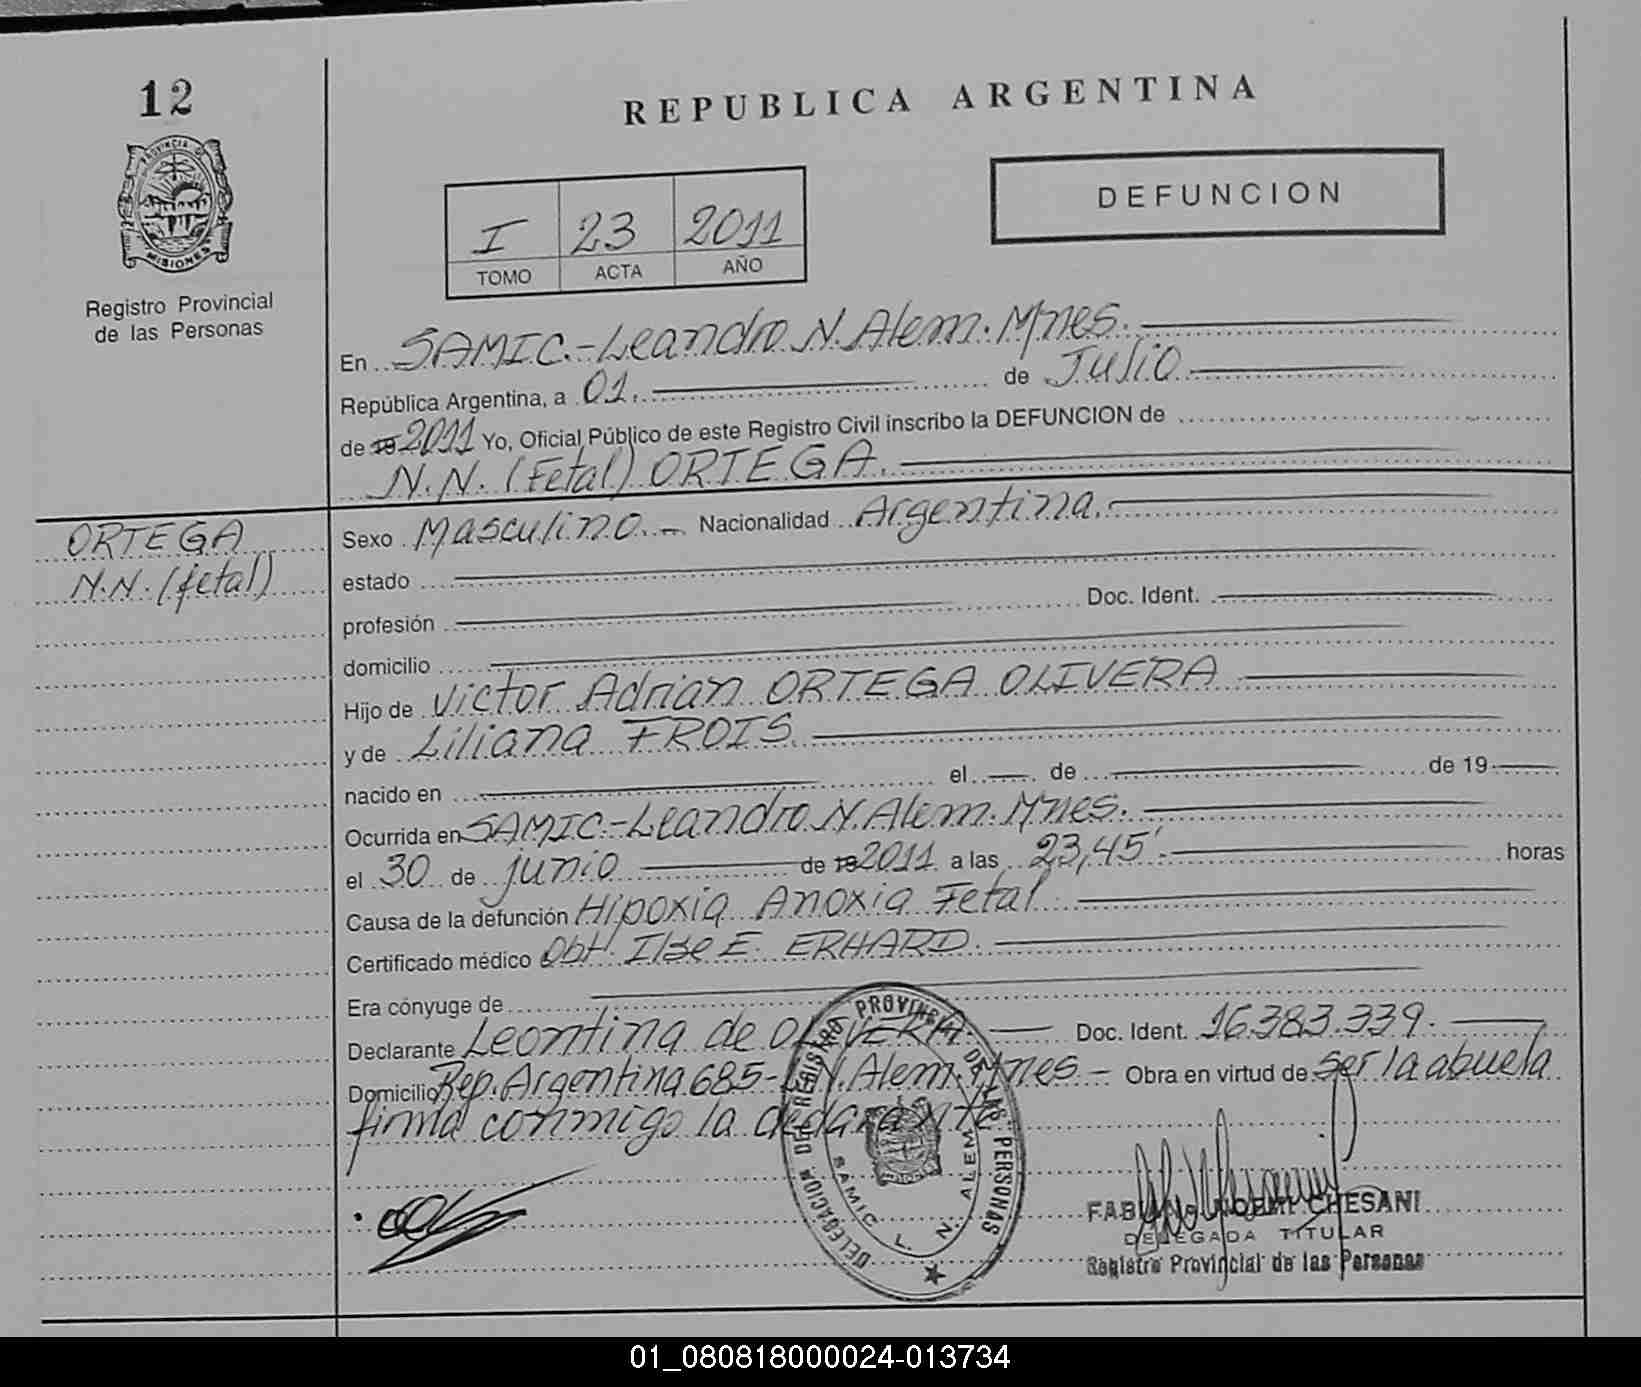 12
PROVINCIA DE
MISIONES
Registro Provincial
de las Personas
REPUBLICA ARGENTINA
I 23 2011
TOMO ACTA AÑO
DEFUNCION
En SAMIC.-Leandro N. Alem. Mnes.
República Argentina, a 01. de Julio
de 19 2011 Yo, Oficial Público de este Registro Civil inscribo la DEFUNCION de
N.N. (Fetal) ORTEGA.
ORTEGA
N.N. (fetal)
Sexo Masculino.- Nacionalidad Argentina.
estado
profesión Doc. Ident.
domicilio
Hijo de Victor Adrian ORTEGA OLIVERA
y de Liliana FROIS
nacido en el de de 19
Ocurrida en SAMIC-Leandro N. Alem. Mnes.
el 30 de junio de 19 2011 a las 23,45'. horas
Causa de la defunción Hipoxia Anoxia Fetal
Certificado médico Obt. Ilse E. ERHARD.
Era cónyuge de
Declarante Leontina de OLIVERA Doc. Ident. 16.383.339.
Domicilio Rep. Argentina 685- L.N. Alem. Mnes - Obra en virtud de ser la abuela
firma conmigo la declarante
DELEGACION DE REGISTRO PROVINCIAL DE LAS PERSONAS
SAMIC L. N. ALEM
FABIANA NOEMI CHESANI
DELEGADA TITULAR
Registro Provincial de las Personas
01_080818000024-013734